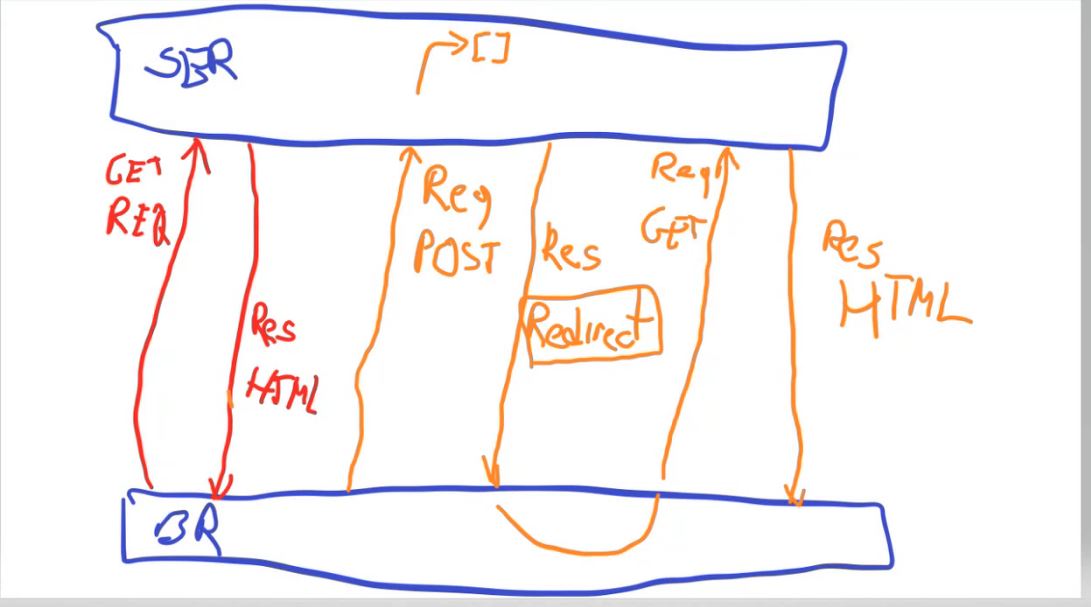 SER
[]
GET
REQ
Res
HTML
Req
POST
Res
Redirect
Req
GET
Res
HTML
BR